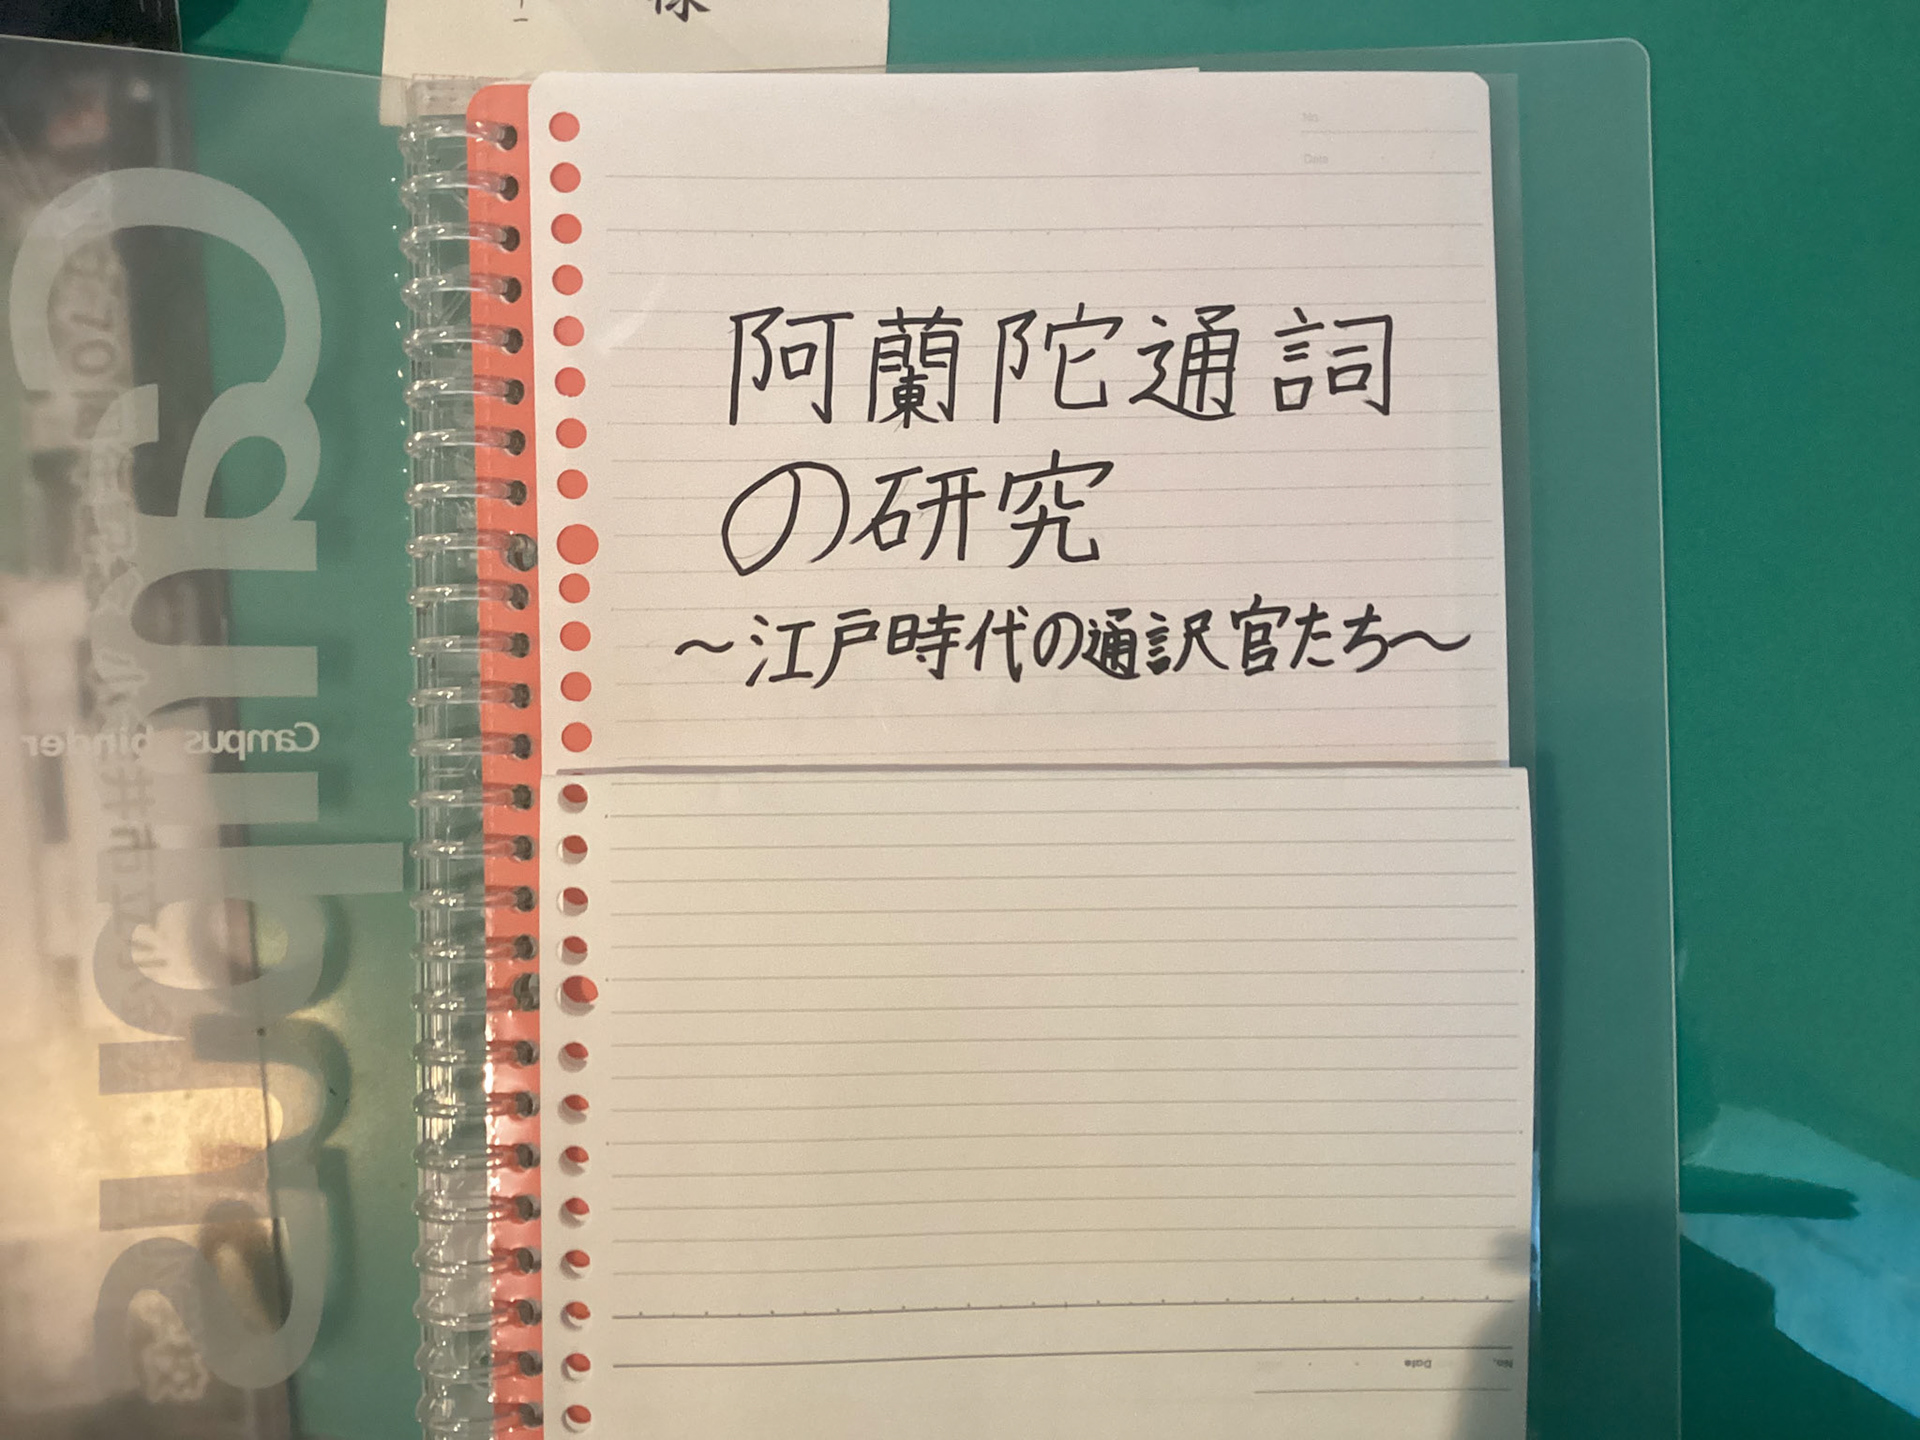 様
No.
Date
阿蘭陀通詞
の研究
〜江戸時代の通訳官たち〜
Campus
Campus binder
No. Date